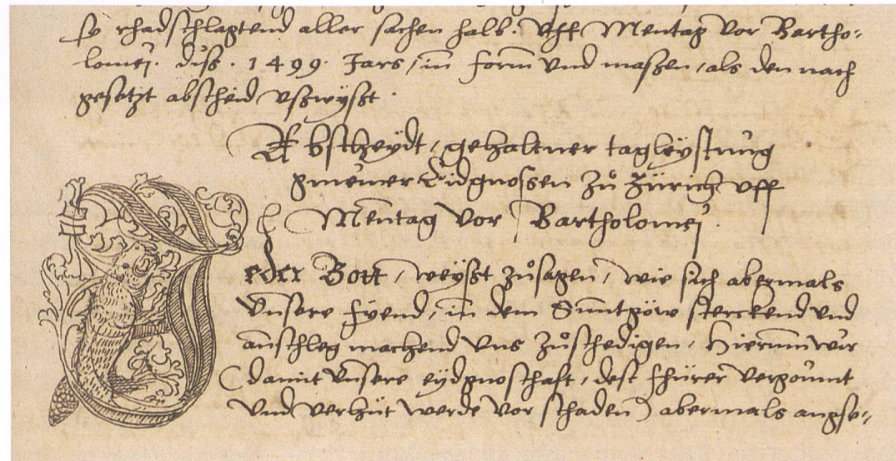 so rhadschlagtend aller sachen halb. Uff Mentag vor Bartho-
lomei. diß. 1499. Jars, in form und maßen, als den nach
gesetzt abscheid ußwyßt.
Abscheydt, gehaltner tagleystung
gmeiner Eidgnossen zů Zürich uff
Mentag vor Bartholomei.
Jeder Bott, weyßt zůsagen, wie sich abermals
unsere fyend, in dem Sunntgöw sterckend und
anschleg machend uns zůschedigen, Hierumm wir
(damit unsere eydgnoschaft, dest
und verhüt werde vor schaden) abermals angse-